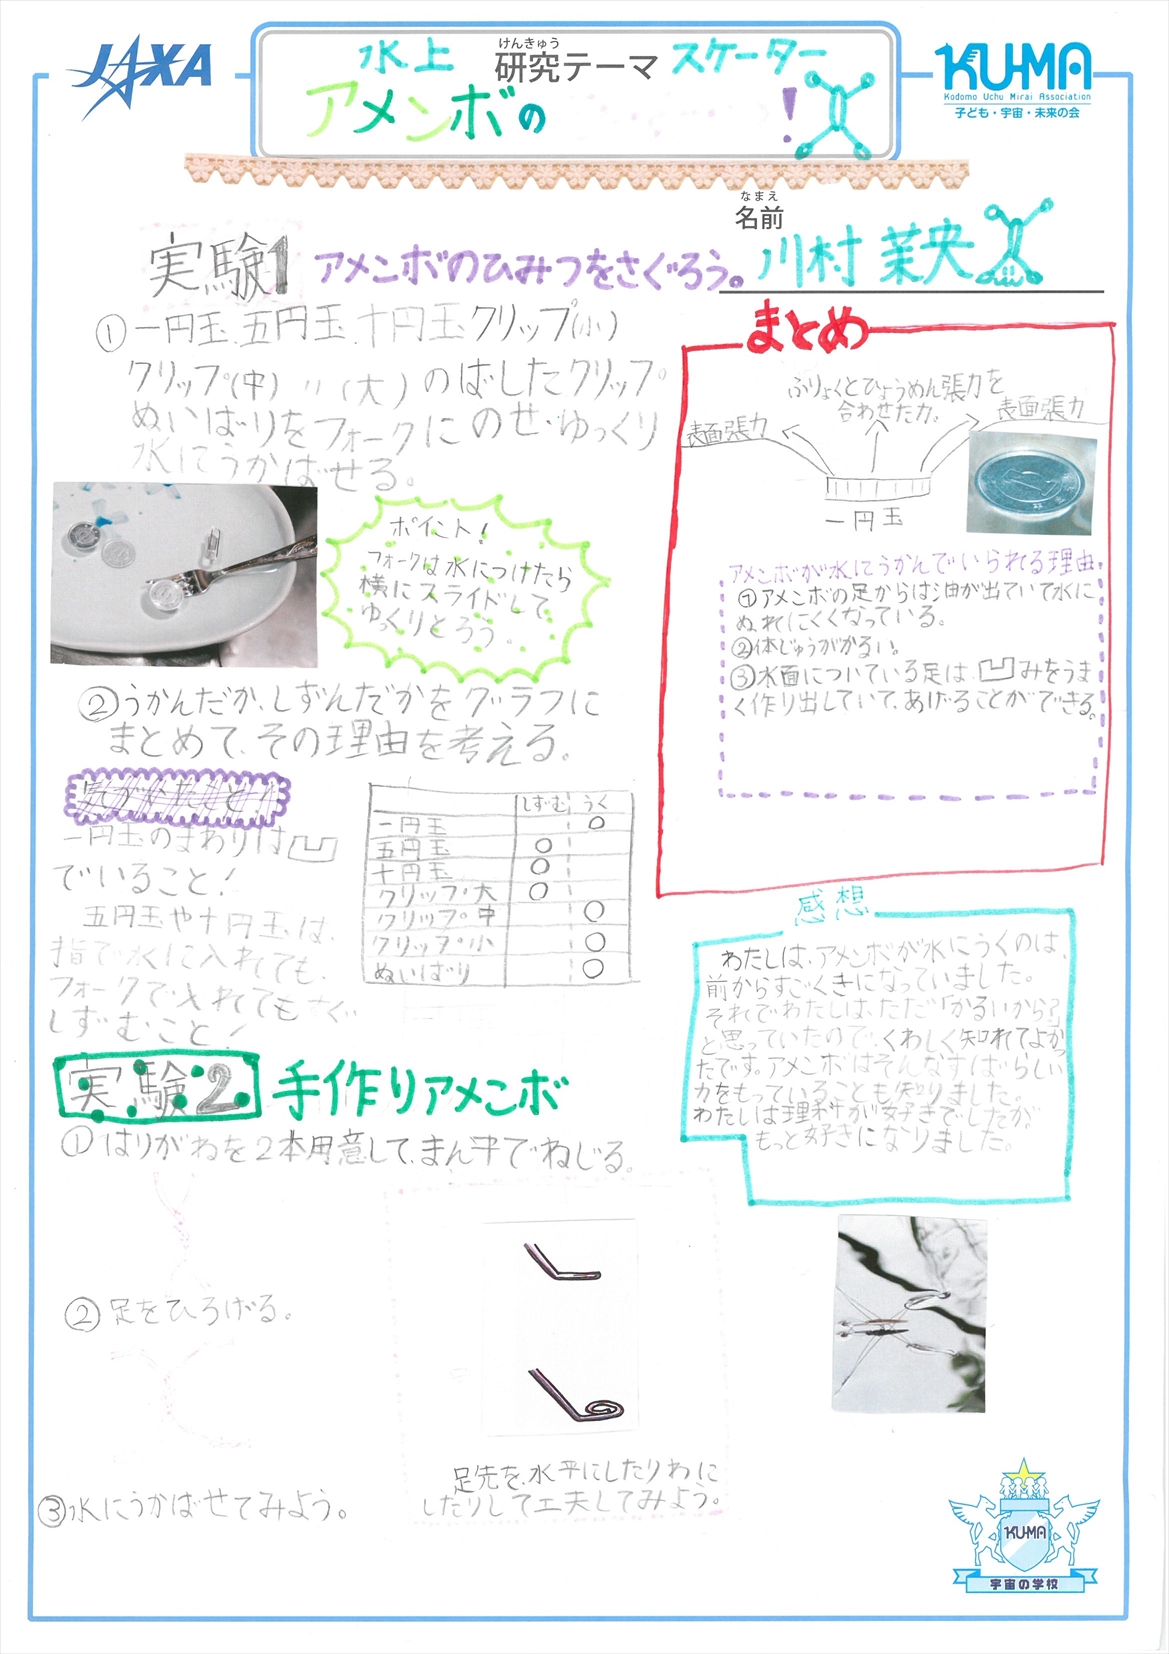 JAXA
水上 研究テーマ スケーター
けんきゅう
アメンボの !
KU-MA
Kodomo Uchu Mirai Association
子ども・宇宙・未来の会
なまえ
名前 川村 茉央
実験1 アメンボのひみつをさぐろう。
① 一円玉、五円玉、十円玉クリップ(小)
クリップ(中) 〃(大)のばしたクリップ
ぬいばりをフォークにのせ、ゆっくり
水にうかばせる。
ポイント!
フォークは水につけたら
横にスライドして、
ゆっくりとろう。
②うかんだか、しずんだかをグラフに
まとめて、その理由を考える。
気がついたこと!
一円玉のまわりは凹
でいること!
五円玉や十円玉は、
指で水に入れても、
フォークで入れてもすぐ
しずむこと!
しずむ うく
一円玉 ○
五円玉 ○
十円玉 ○
クリップ・大 ○
クリップ・中 ○
クリップ・小 ○
ぬいばり ○
実験2 手作りアメンボ
①はりがねを2本用意して、まん中でねじる。
②足をひろげる。
③水にうかばせてみよう。
足先を、水平にしたりわに
したりして工夫してみよう。
まとめ
ふりょくとひょうめん張力を
合わせた力。
表面張力
表面張力
一円玉
アメンボが水にうかんでいられる理由
①アメンボの足からは油が出ていて水に
ぬれにくくなっている。
②体じゅうがかるい。
③水面についている足は、凹みをうま
く作り出していて、あげることができる。
感想
わたしは、アメンボが水にうくのは、
前からすごくきになっていました。
それでわたしは、ただ「かるいから?」
と思っていたので、くわしく知れてよかっ
たです。アメンボはそんなすばらしい
力をもっていることも知りました。
わたしは理科が好きでしたが、
もっと好きになりました。
KU-MA
宇宙の学校